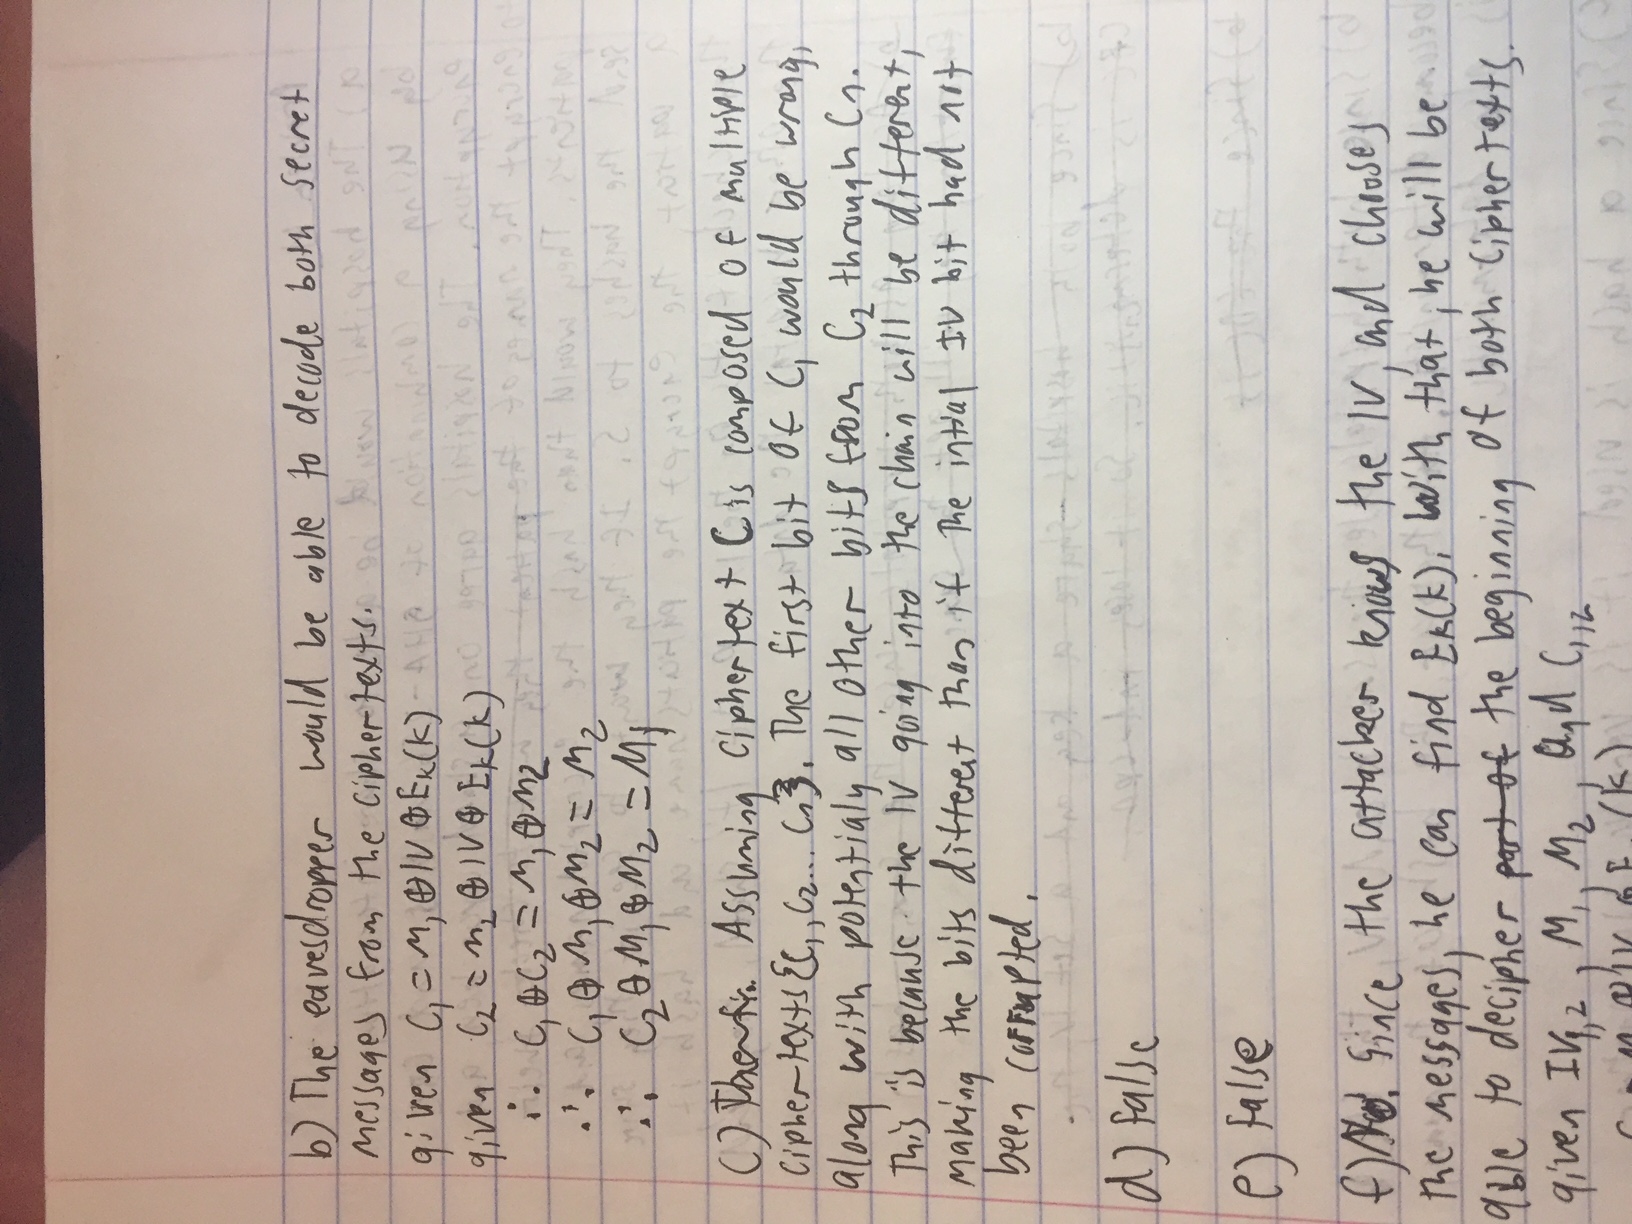 b) The eavesdropper would be able to decode both secret
messages from the ciphertexts.
given C₁ = M₁ ⊕ IV ⊕ Eₖ(K)
given C₂ = M₂ ⊕ IV ⊕ Eₖ(K)
∴ C₁ ⊕ C₂ = M₁ ⊕ M₂
∴ C₁ ⊕ M₁ ⊕ M₂ = M₂
∴ C₂ ⊕ M₁ ⊕ M₂ = M₁
C) Assuming Ciphertext C is composed of multiple
ciphertexts {C₁, C₂... Cₙ}. The first bit of C₁ would be wrong,
along with potentialy all other bits from C₂ through Cₙ.
This is because the IV going into the chain will be different,
making the bits different than if the intial IV bit had not
been corrupted.
d) False
e) False
f) No. Since the attacker knows the IV, and chooses
the messages, he can find Eₖ(K). With that, he will be
able to decipher part of the beginning of both Ciphertexts.
given IV₁,₂, M₁, M₂, and C₁,₂
C = M ⊕ IV ⊕ E (K)